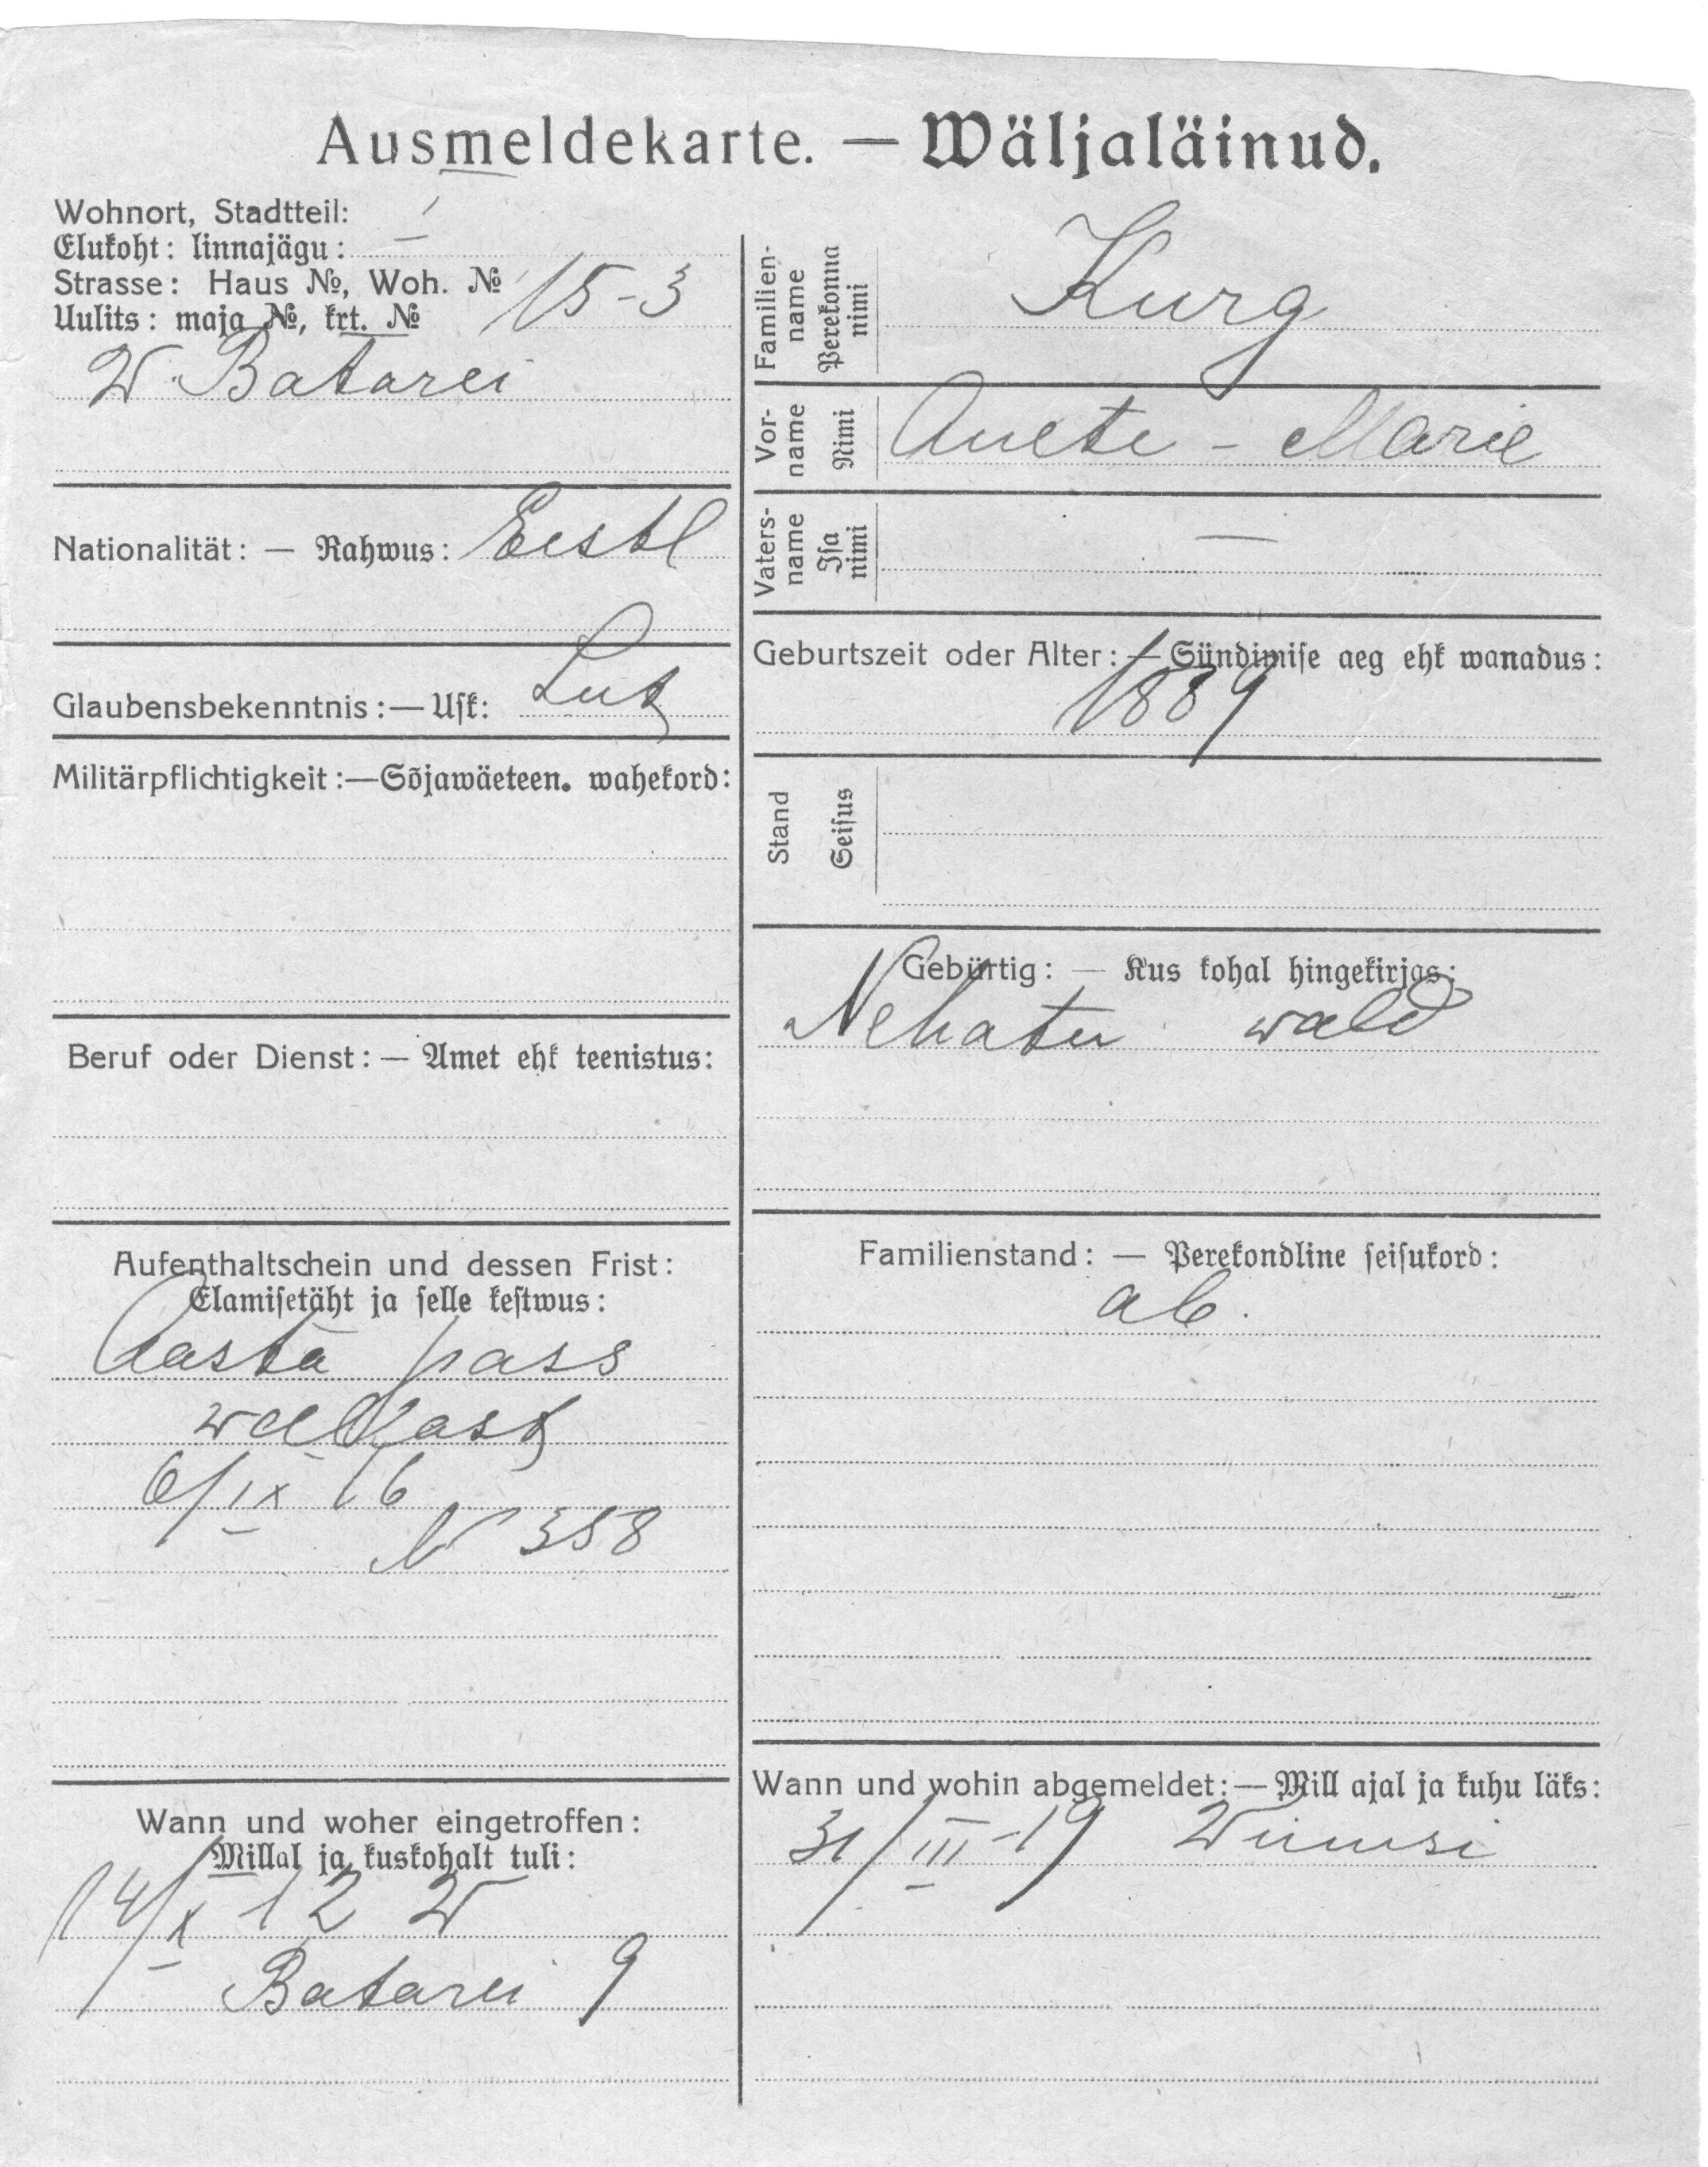 Ausmeldekarte. — Wäljaläinud.
Wohnort, Stadtteil: I
Elukoht: linnajägu:
Strasse: Haus №, Woh. № 15-3
Uulits: maja №, krt. №
W. Batarei
Nationalität: — Rahwus: Eestl
Glaubensbekenntnis: — Usk: Lut
Militärpflichtigkeit: — Sõjawäeteen. wahekord:
Beruf oder Dienst: — Amet ehk teenistus:
Aufenthaltschein und dessen Frist:
Elamisetäht ja selle kestwus:
Aasta pass
wallast
6/IX 16
N 358
Wann und woher eingetroffen:
Millal ja kuskohalt tuli:
14/X 12 W
Batarei 9
Familien-
name
Perekonna
nimi
Kurg
Vor-
name
Nimi
Anete - Marie
Vaters-
name
Isa
nimi
—
Geburtszeit oder Alter: — Sündimise aeg ehk wanadus:
1889
Stand
Seisus
Gebürtig: — Kus kohal hingekirjas:
Nehatu wald
Familienstand: — Perekondline seisukord:
ab.
Wann und wohin abgemeldet: — Mill ajal ja kuhu läks:
31/III-19 Wiimsi